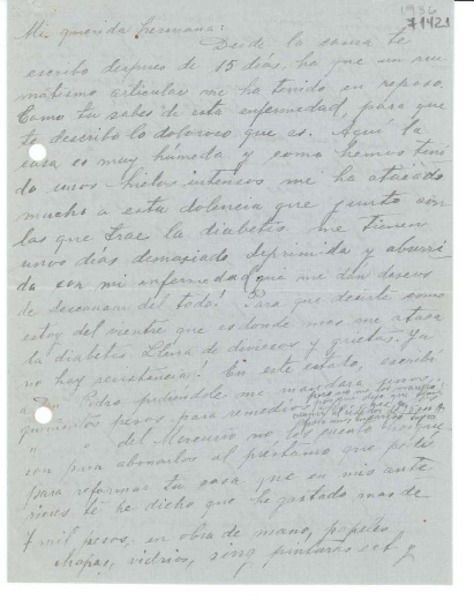 1936
71421
Mi querida hermana:
Desde la cama te
escribo despues de 15 días, ha que un reu-
matismo articular me ha tenido en reposo.
Como tu sabes de esta enfermedad, para que
te describo lo doloroco que es. Aquí la
casa es muy húmeda y como hemos teni
do unos hielos intensos me ha atacado
mucho a esta dolencia que junto con
las que trae la diabetis me tienen
unos días demasiado deprimida y aburri
da con mi enfermedad que me dan deseos
de descansar del todo! Para que decirte como
estoy del vientre que es donde mas me ataca
la diabetis Llena de diviesos y grietas. Ya
no hay resistencia! En este estado, escribí
a Don Pedro pidiendole me mandara unos
quinientos pesos para remedios
" " del Mercurio no los cuento porque
son para abonarlos al préstamo que pedí
para reformar tu casa que en mis ante
riores te he dicho que he gastado mas de
7 mil pesos, en obra de mano, papeles
chapas, vidrios, zinq pinturas ect y